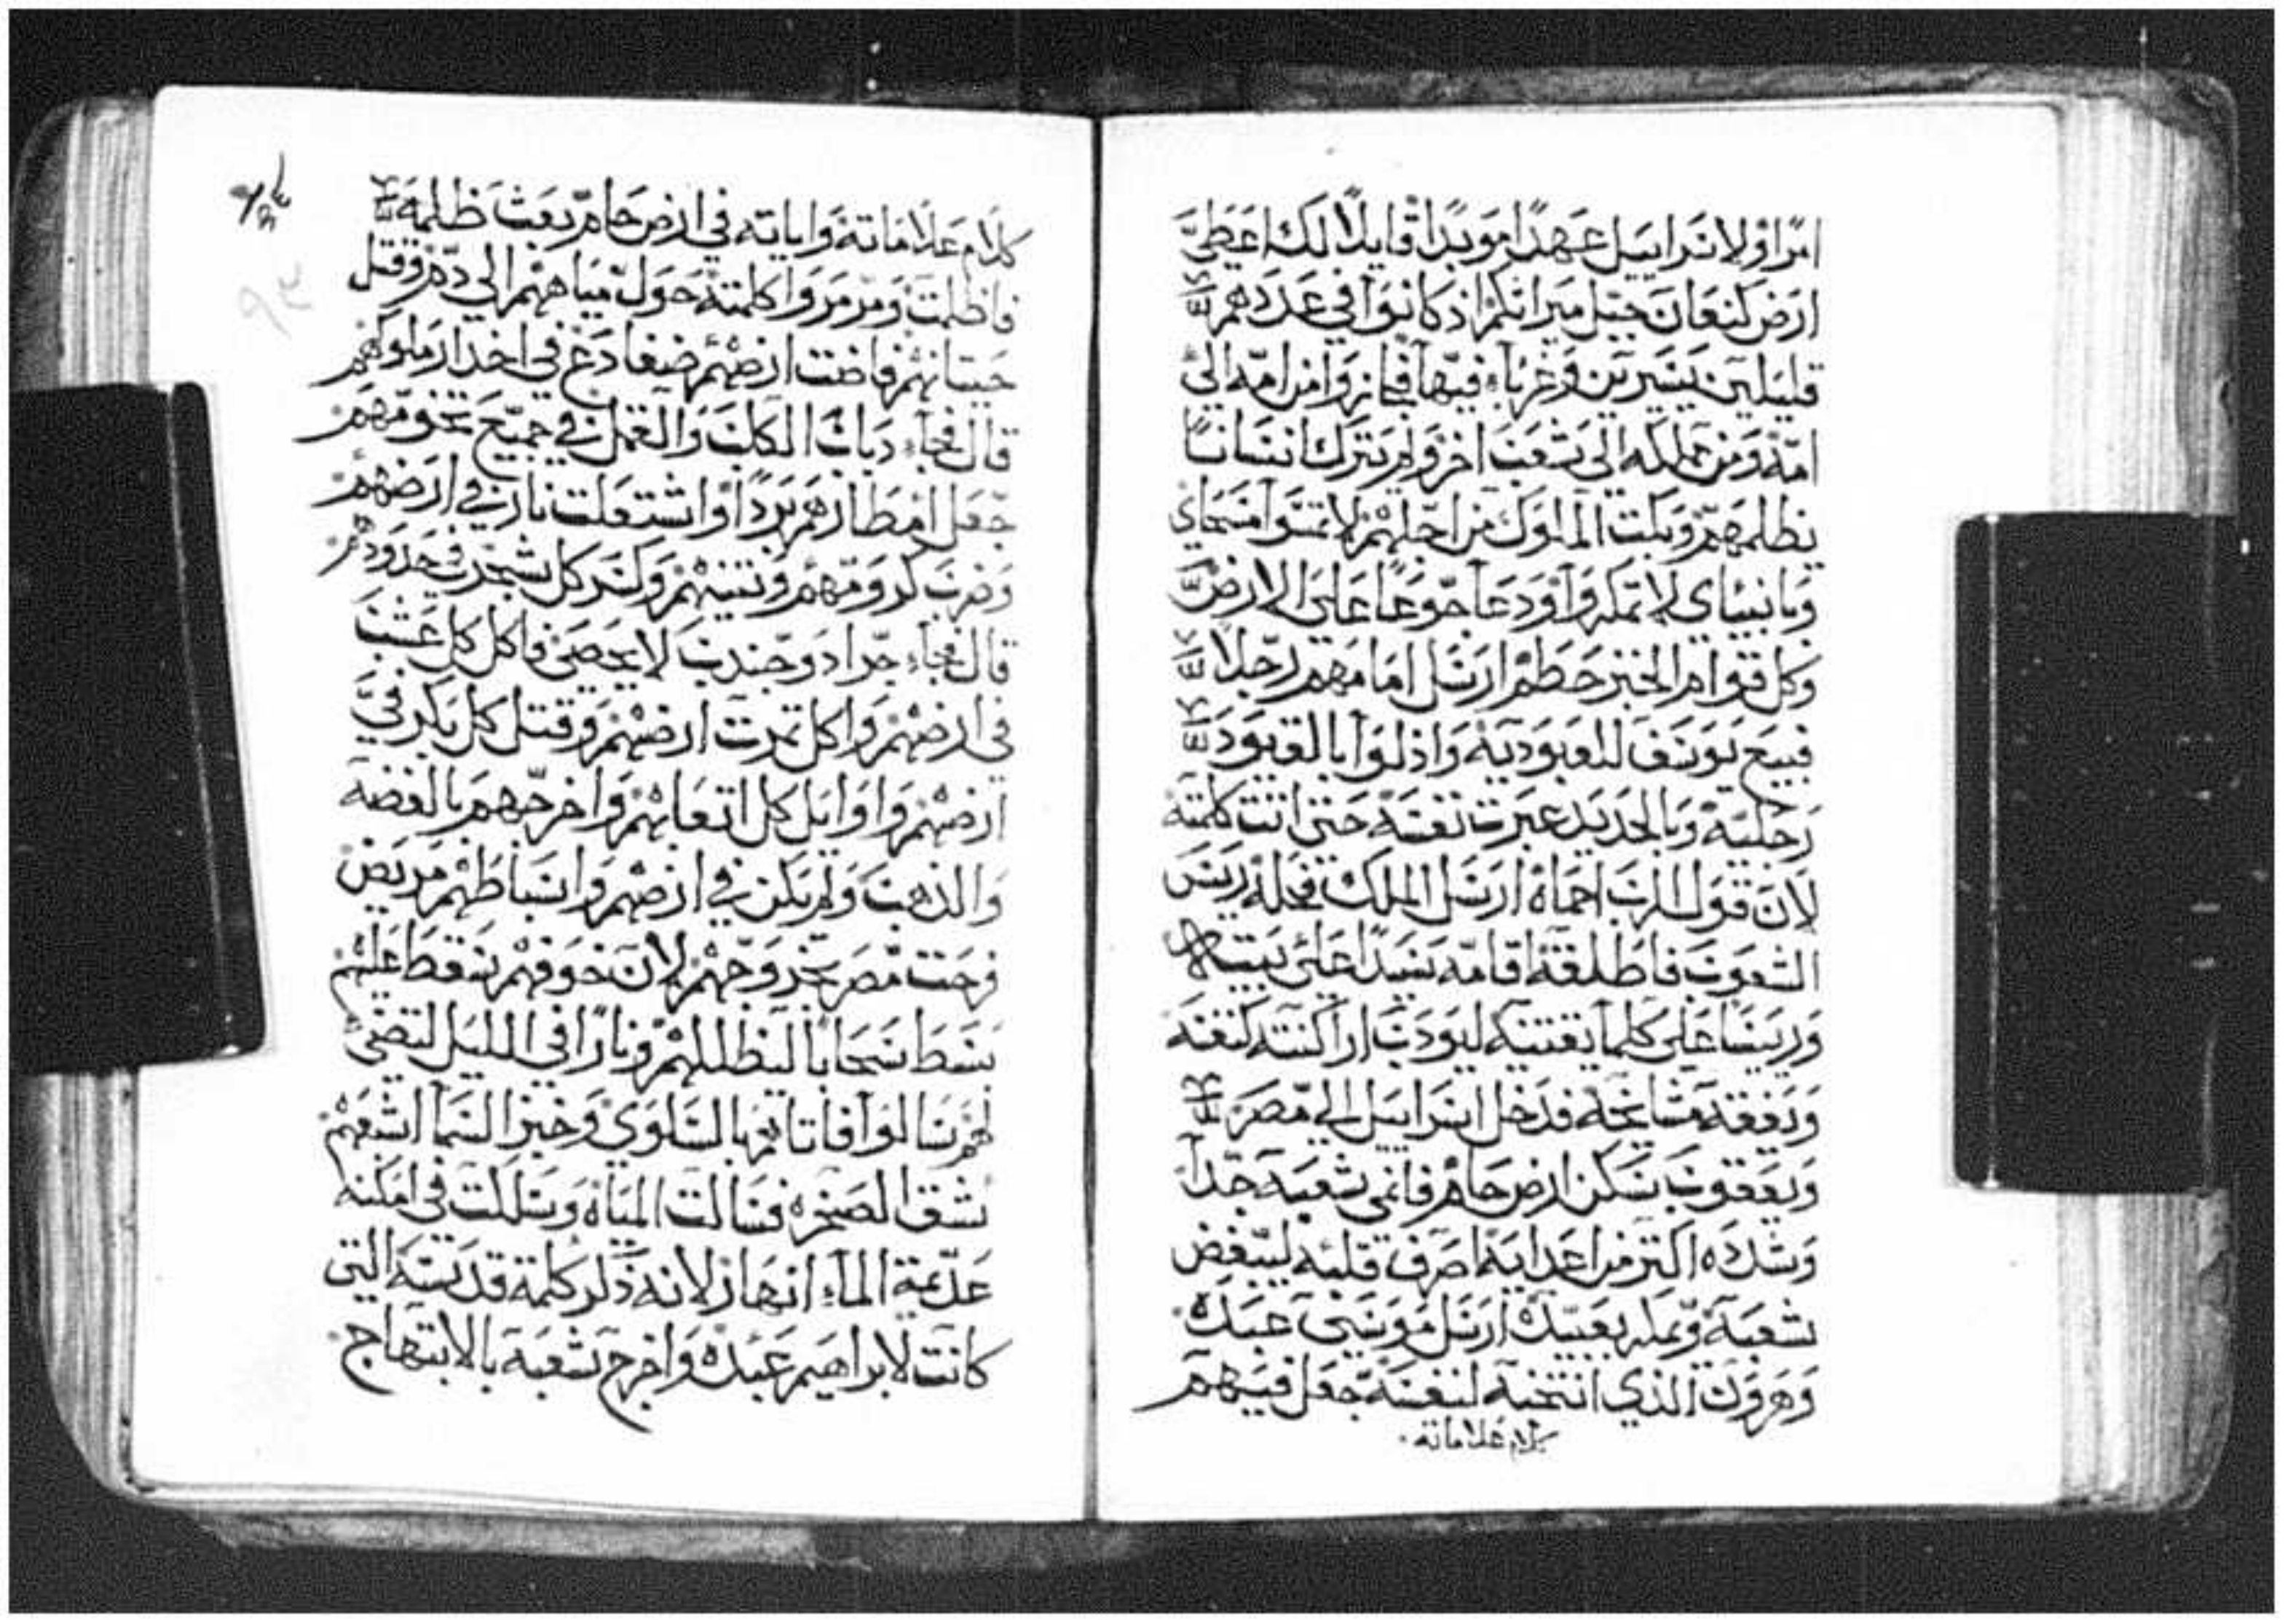 امرًا ولاسراييل عهدًا موبدًا قايلًا لك اعطي
ارض كنعان حبل ميراثكم اذ كانوا في عددهم
قليلين يسيرين وغرباء فيها فجاز وامن امه الى
امة ومن مملكه الى شعب اخر ولم يترك انسانًا
يظلمهم وبكت الملوك من اجلهم لا تمسوا مسحاي
وبانبياى لا تمكروا ودعا جوعًا على الارض
وكل قوام الخبز حطم ارسل امامهم رجلا
فبيع يوسف للعبوديه واذلوا بالقيود
رجليه وبالحديد عبرت نفسه حتى اتت كلمته
لان قول الرب احماه ارسل الملك فحله ريس
الشعوب فاطلقه اقامه سيدًا على بيته
وريسًا على كلما يقتنيه ليودب اراكنته كنفسه
ويفقه مشايخه فدخل اسراييل الى مصر
ويعقوب سكن ارض حام فانمى شعبه جدًا
وشدده اكثر من اعدايه اصرف قلبه ليبغض
شعبه ويمكر بعبيده ارسل موسى عبده
وهرون الذي انتخبه لنفسه جعل فيهم
كلام علاماته
كلام علاماته واياته في ارض حام بعث ظلمه
فاظلمت ومرمروا كلمته حول مياههم الي دم وقتل
حيتانهم فاضت ارضهم ضفادع في اخدار ملوكهم
قال فجاء دباب الكلب والقمل في جميع تخومهم
جعل امطارهم بردًا واشتعلت نار في ارضهم
وضرب كرومهم وتينهم وكسر كل شجر في حدودهم
قال فجاء جراد وجندب لا يحصى فاكل كل عشب
في ارضهم واكل تمرت ارضهم وقتل كل بكر في
ارضهم واوايل كل اتعابهم واخرجهم بالفضه
والذهب ولم يكن في ارضهم واسباطهم مريض
فرحت مصر بخروجهم لان خوفهم سقط عليهم
بسط سحابا ليظللهم ونارًا في الليل لتضي
لهم سالوا فاتاهم بالسلوى وخبز السما اشبعهم
شق الصخره فسالت المياه وسلكت في امكنه
عديمة الماء انهار لانه ذكر كلمة قدسه التي
كانت لابراهيم عبده واخرج شعبه بالابتهاج